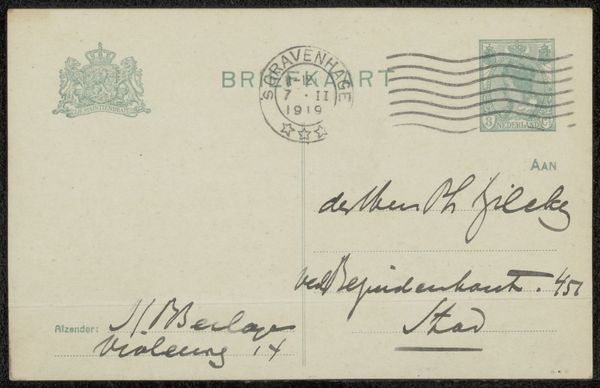 BRIEFKAART
'SGRAVENHAGE
7 · II
1919
3 NEDERLAND Ct
AAN
den Heer Ph Zilcken
Bezuidenhout . 451
Stad
Afzender: H P Berlage
Violenweg 14